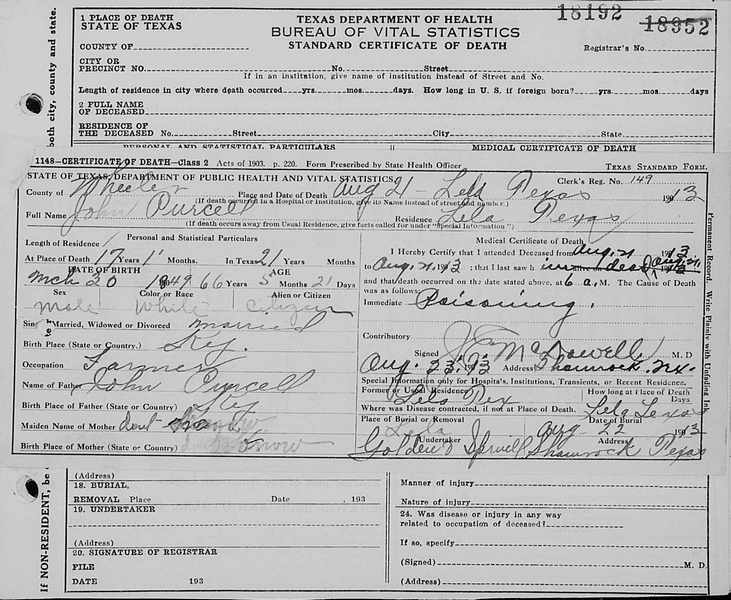 1 PLACE OF DEATH
STATE OF TEXAS
TEXAS DEPARTMENT OF HEALTH
BUREAU OF VITAL STATISTICS
STANDARD CERTIFICATE OF DEATH
18192 18952
COUNTY OF
Registrar's No.
CITY OR
PRECINCT NO. No. Street
If in an institution, give name of institution instead of Street and No.
Length of residence in city where death occurred yrs. mos. days. How long in U. S. if foreign born? yrs. mos. days
2 FULL NAME
OF DECEASED
RESIDENCE OF
THE DECEASED No. Street City State
PERSONAL AND STATISTICAL PARTICULARS MEDICAL CERTIFICATE OF DEATH
both city, county and state.
1148—CERTIFICATE OF DEATH—Class 2 Acts of 1903. p. 220. Form Prescribed by State Health Officer TEXAS STANDARD FORM.
STATE OF TEXAS, DEPARTMENT OF PUBLIC HEALTH AND VITAL STATISTICS Clerk's Reg. No. 149
County of Wheeler Place and Date of Death Aug 21 - Lela Texas 1913
(If death occurred in a Hospital or institution, give its Name instead of street and number.)
Full Name John Purcell Residence Lela Texas
(If death occurs away from Usual Residence, give facts called for under "Special Information")
Personal and Statistical Particulars
Length of Residence
At Place of Death 17 Years 1 Months. In Texas 21 Years Months
DATE OF BIRTH AGE
Mch 20 1849 66 Years 5 Months 21 Days
Sex Color or Race Alien or Citizen
Male White Citizen
Single, Married, Widowed or Divorced married
Birth Place (State or Country.) Ky.
Occupation Farmer
Name of Father John Purcell
Birth Place of Father (State or Country) Ky
Maiden Name of Mother dont know
Birth Place of Mother (State or Country)
Medical Certificate of Death
I Hereby Certify that I attended Deceased from Aug. 21 1913
to Aug. 21, 1913; that I last saw h dead Aug. 21 1913
and that death occurred on the date stated above, at 6 a. M. The Cause of Death
was as follows:
Immediate Poisoning.
Contributory
Signed J. C. McDowell M. D
Aug. 23, 1913 Address Shamrock, Tex.
Special Information only for Hospitals, Institutions, Transients, or Recent Residence.
Former or Usual Residence How long at Place of Death
Lela Tex Days
Where was Disease contracted, if not at Place of Death. Lela Texas
Place of Burial or Removal Date of Burial
Lela Aug 22 1913
Undertaker Address
Golden & Shamrock Texas
Permanent Record. Write Plainly with Unfading Ink.
If NON-RESIDENT, be
(Address)
18. BURIAL,
REMOVAL Place Date , 193
19. UNDERTAKER
(Address)
20. SIGNATURE OF REGISTRAR
FILE
DATE 193
Manner of injury
Nature of injury
24. Was disease or injury in any way
related to occupation of deceased?
If so, specify
(Signed) M. D.
(Address)